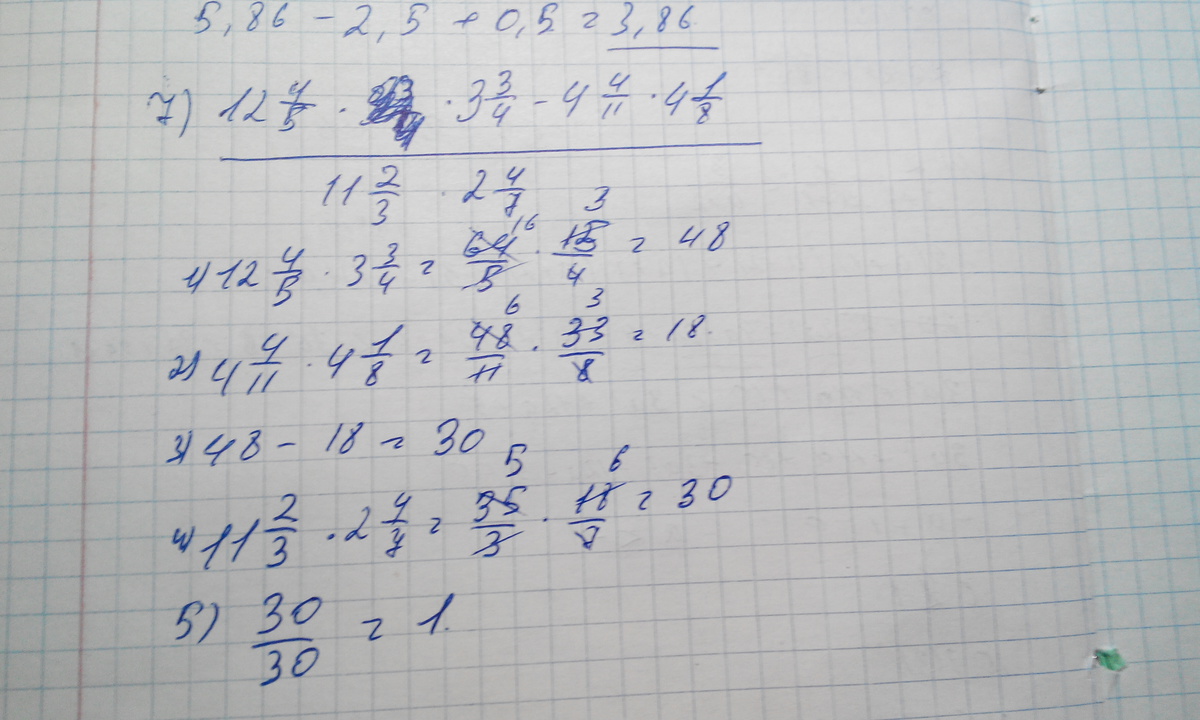 5,86 - 2,5 + 0,5 = 3,86
7) 12 4/5 · 3 3/4 - 4 4/11 · 4 1/8
11 2/3 · 2 4/7
1) 12 4/5 · 3 3/4 = 64/5 16 · 15/4 3 = 48
2) 4 4/11 · 4 1/8 = 48/11 6 · 33/8 3 = 18.
3) 48 - 18 = 30
4) 11 2/3 · 2 4/7 = 35/3 5 · 18/7 6 = 30
5) 30/30 = 1.